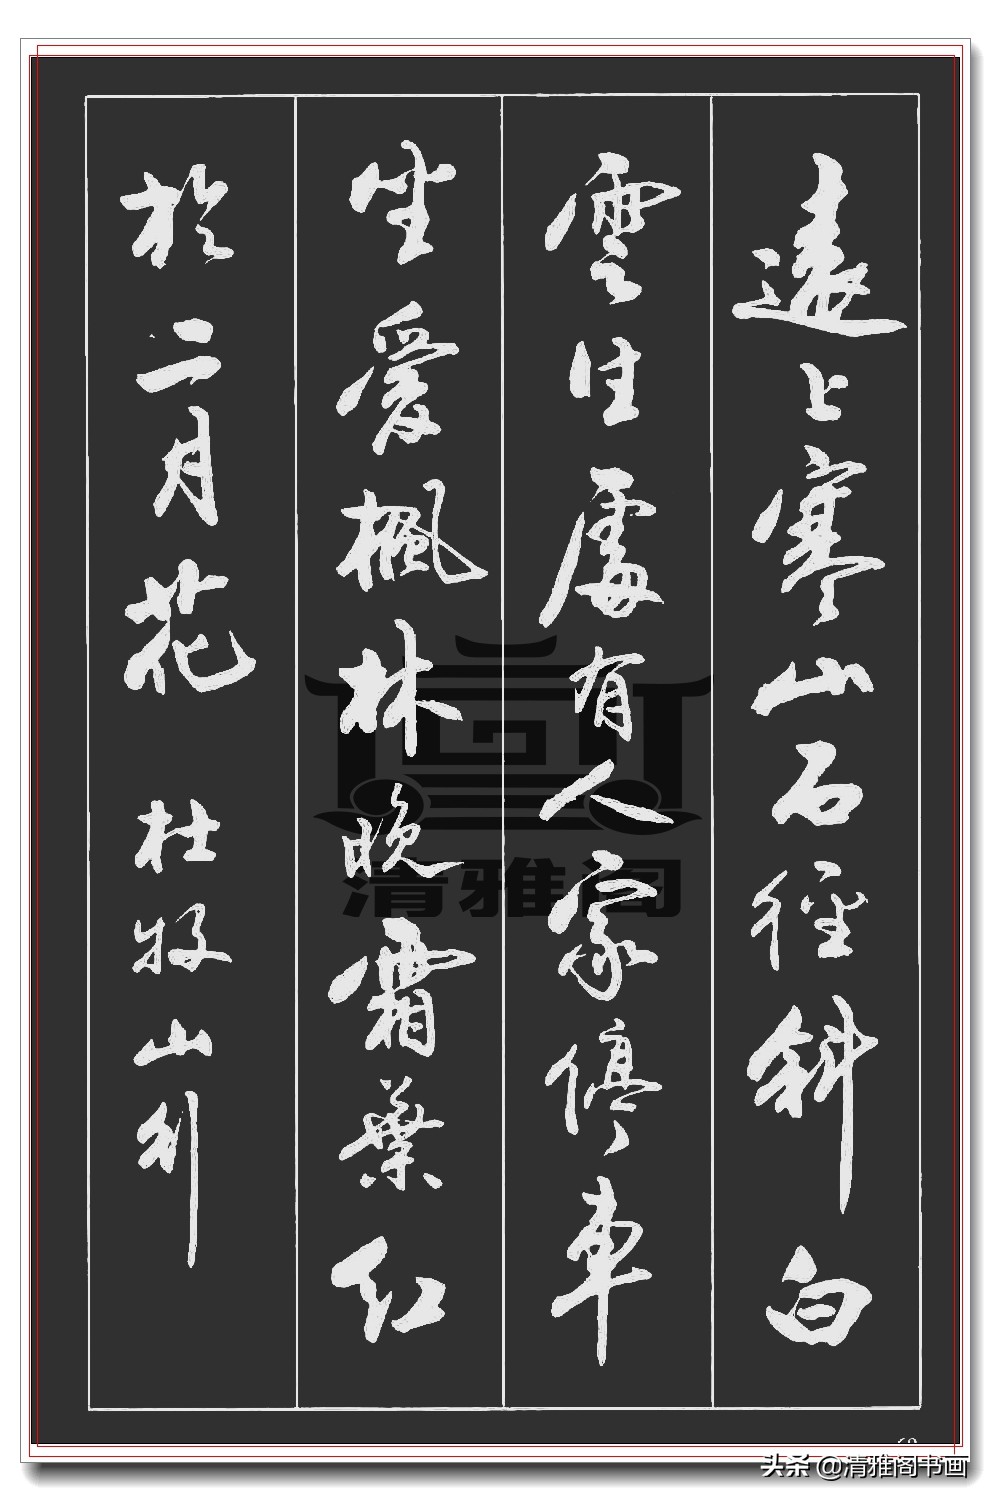 遠上寒山石徑斜白
雲生處有人家停車
坐愛楓林晚霜葉红
於二月花 杜牧山行
清雅阁
头条 @清雅阁书画